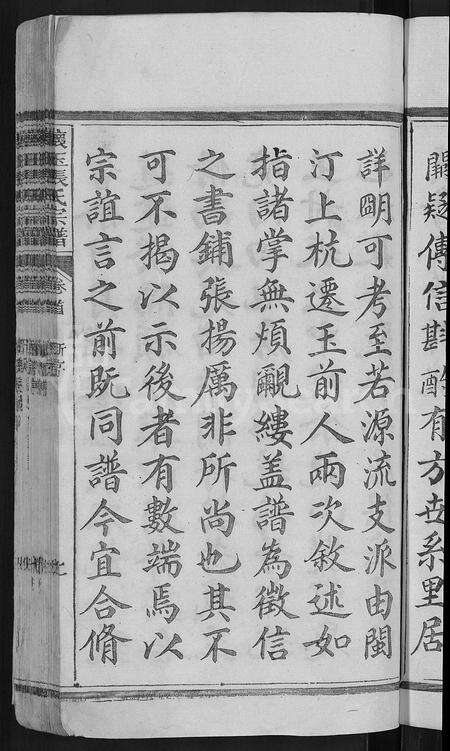 闕疑傳信斟酌有方世系里居
詳明可考至若源流支派由閩
汀上杭遷玉前人兩次敘述如
指諸掌無煩覼縷蓋譜為徵信
之書鋪張揚厲非所尚也其不
可不揭以示後者有數端焉以
宗誼言之前既同譜今宜合脩
懷玉張氏宗譜
卷首